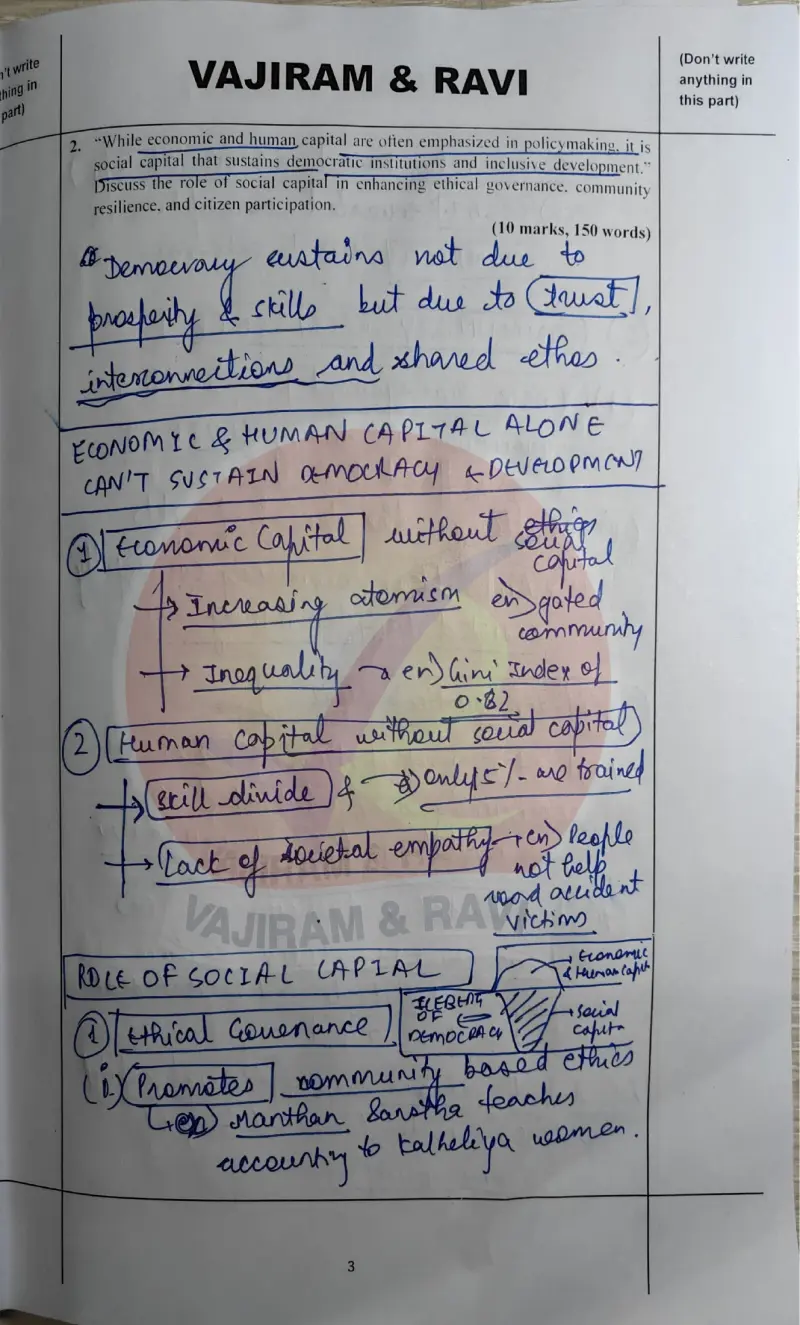 n't write
thing in
part)
VAJIRAM & RAVI
(Don't write
anything in
this part)
2. "While economic and human capital are often emphasized in policymaking, it is
social capital that sustains democratic institutions and inclusive development."
Discuss the role of social capital in enhancing ethical governance, community
resilience, and citizen participation.
(10 marks, 150 words)
Democracy sustains not due to
prosperity & skills but due to trust,
interconnections and shared ethos.
ECONOMIC & HUMAN CAPITAL ALONE
CAN'T SUSTAIN DEMOCRACY & DEVELOPMENT
1 Economic Capital without ethics
social
capital
→ Increasing atomism en) gated
community
→ Inequality → en) Gini Index of
0.82
2 Human capital without social capital
→ skill divide & → only 5% are trained
→ Lack of societal empathy → en) People
not help
road accident
victims
VAJIRAM & RAVI
ROLE OF SOCIAL CAPIAL
→ Economic
& Human Capit
ICEBERG
OF
DEMOCRACY
→ social
capita
1 Ethical Governance
(i) Promotes community based ethics
↳ en) Manthan Sanstha teaches
accounting to Kalheliya women.
3